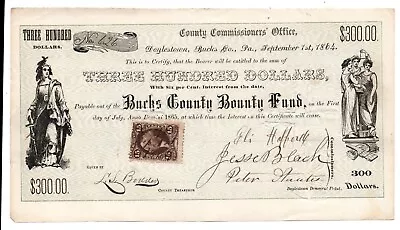 THREE HUNDRED
DOLLARS.
County Commissioners' Office,
$300.00.
Doylestown, Bucks Co., Pa., September 1st, 1864.
This is to Certify, that the Bearer will be entitled to the sum of
THREE HUNDRED DOLLARS,
With Six per Cent. Interest from the date,
Payable out of the Bucks County Bounty Fund, on the First
day of July, Anno Domini 1865, at which time the Interest on this Certificate will cease.
Jesse Black
Peter
COUNTY TREASURER.
$300.00.
Doylestown Democrat Print.
300
Dollars.